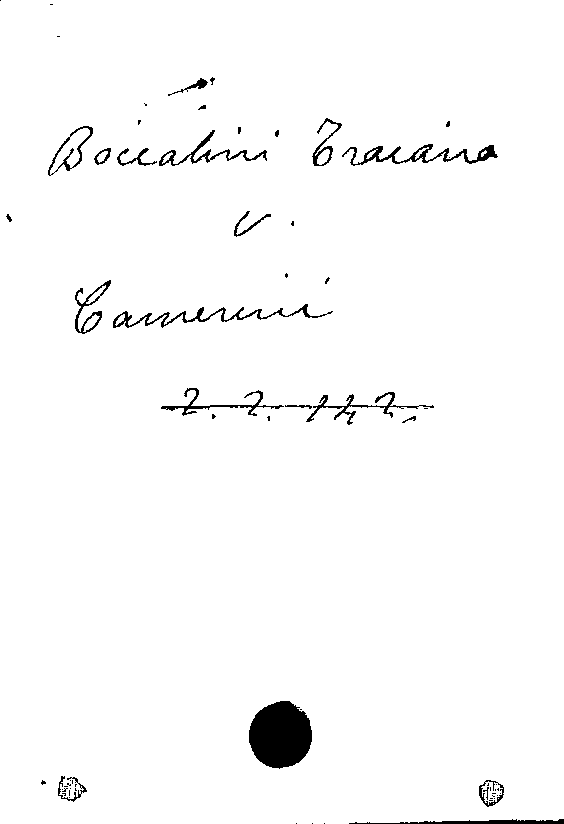 Boccalini Traiano
v.
Camerini
2. 2. 142.